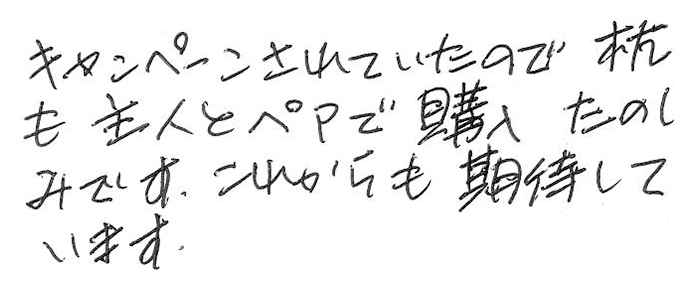 キャンペーンされていたので 枕
も 主人とペアで 購入 たのし
みです. これからも 期待して
います.